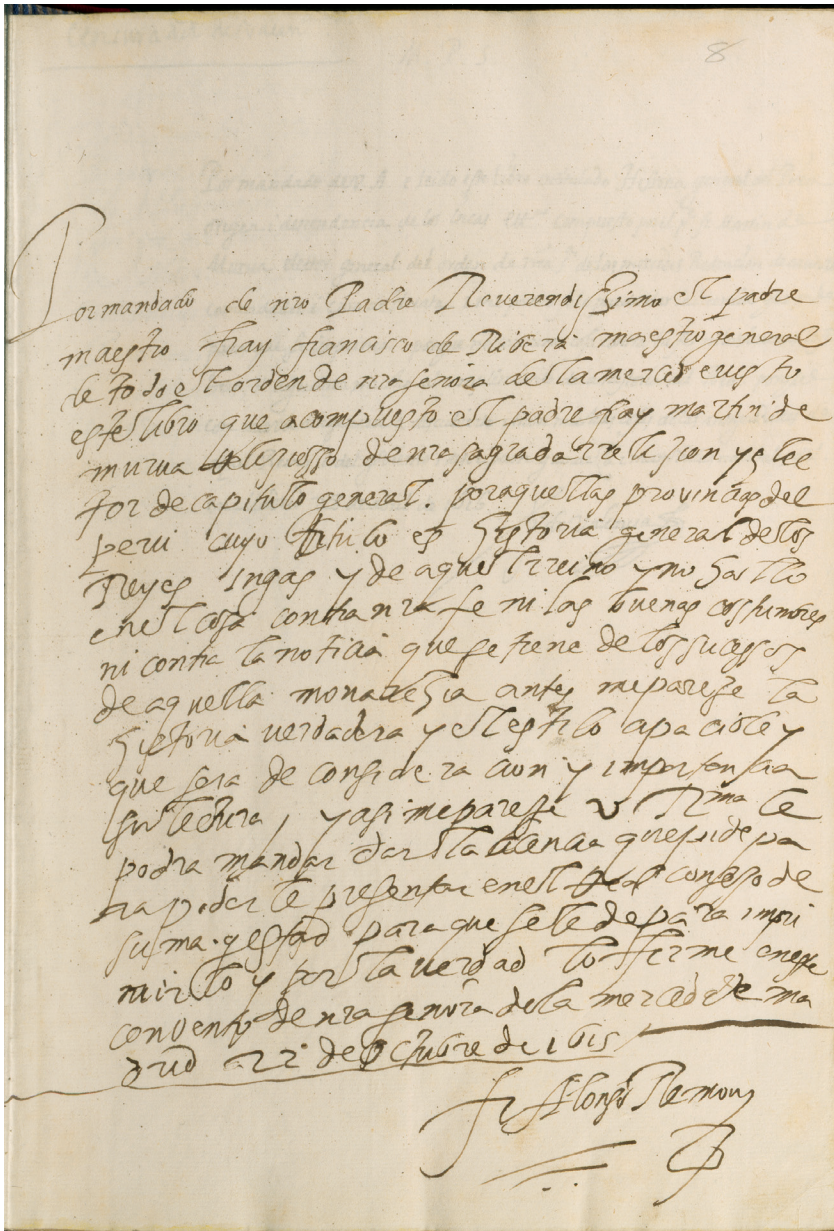 8
Por mandado de nro Padre Reverendissimo el padre
maestro fray francisco de Ribera maestro general
de todo el orden de nra señora de la merced e visto
este libro que a compuesto el padre fray martin de
murua Religiosso de nra sagrada rreligion y elec
tor de capitulo general. por aquellas provincias del
peru cuyo titulo es historia general de los
Reyes Ingas y de aquel rreino y no hallo
en el cosa contra nra fe ni las buenas costumbres
ni contra la noticia que se tiene de los sucessos
de aquella monarchia antes me pareze la
historia verdadera y el estilo apacible y
que sera de consideracion y importancia
su lectura, y asi me pareze v Rma le
podra mandar dar la licencia que pide pa
ra poder le presentar en el Real consejo de
su magestad para que se le de para impri
mirlo y por la verdad lo firme en este
convento de nra señora de la merced de ma
drid a 22 de Octubre de 1615
fr Alonso Remon